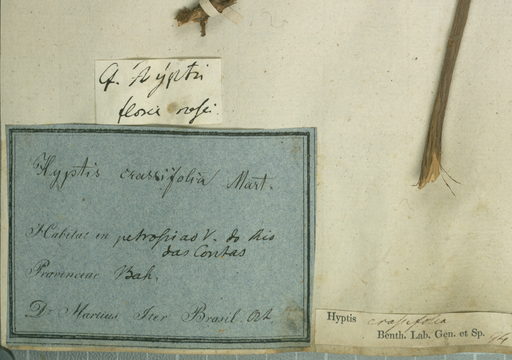 Hyptis
flores rosei
Hyptis crassifolia Mart.
Habitat in petrosis ad V. do Rio
das Contas
Provinciae Bah.
Dr. Martius Iter Brasil. Obs.
Hyptis crassifolia
Benth. Lab. Gen. et Sp.